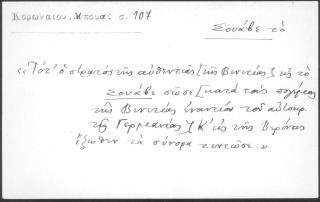 Κορωναίου, Μπούας σ. 107
Σουάβε τὸ
«Τότ' ὁ στρατὸς τῆς αὐθεντιᾶς [τῆς Βενετίας] εἰς τὸ
Σουάβε σῶσε [κατὰ τοὺς πολέμους
τῆς Βενετίας ἐναντίον τοῦ αὐτοκρ.
τῆς Γερμανίας] κ' εἰς τῆς Βερόνας
ἔξωθεν τὰ σύνορα τεντῶσε.»